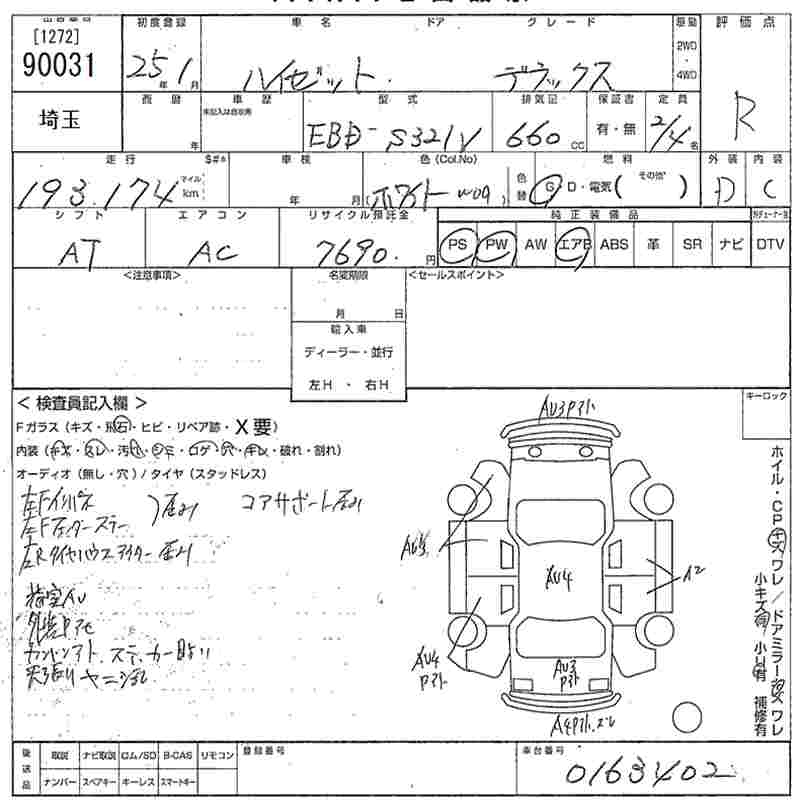 [1272]
90031
初度登録 車名 ドア グレード 駆動 評価点
25年1月 ハイゼット デラックス 2WD・4WD R
埼玉
西暦 車歴 型式 排気記 保証書 定員
年 未記入は自家用 EBD-S321V 660cc 有・無 2/4名
走行 S#* 車検 色(Col.No) 燃料 外装 内装
193,174 マイル km 年 月 (ホワイト W09) 色替 G・D・電気( その他 ) D C
シフト エアコン リサイクル預託金 純正装備品
AT AC 7690円 PS PW AW エアB ABS 革 SR ナビ DTV
<注意事項> 名変期限 <セールスポイント>
月 日
輸入車
ディーラー・並行
左H・右H
<検査員記入欄> キーロック
Fガラス(キズ・飛石・ヒビ・リペア跡・X要)
内装(キズ・スレ・汚れ・シミ・コゲ・穴・キレ・破れ・割れ)
オーディオ(無し・穴)/タイヤ(スタッドレス)
左Fインパネ 歪み コアサポート歪み
左Rタイヤハウス 歪み
荷室AU
ステッカー
ヤニ
AU3
AU4
A2
AU4
AU3
ホイル・CPキズワレ/ドアミラーキズワレ
小キズ有 小凹有 補修有
後送品 取説 ナビ取説 ロム/SD B-CAS リモコン 登録番号 車台番号
ナンバー スペアキー キーレス スマートキー 0163402